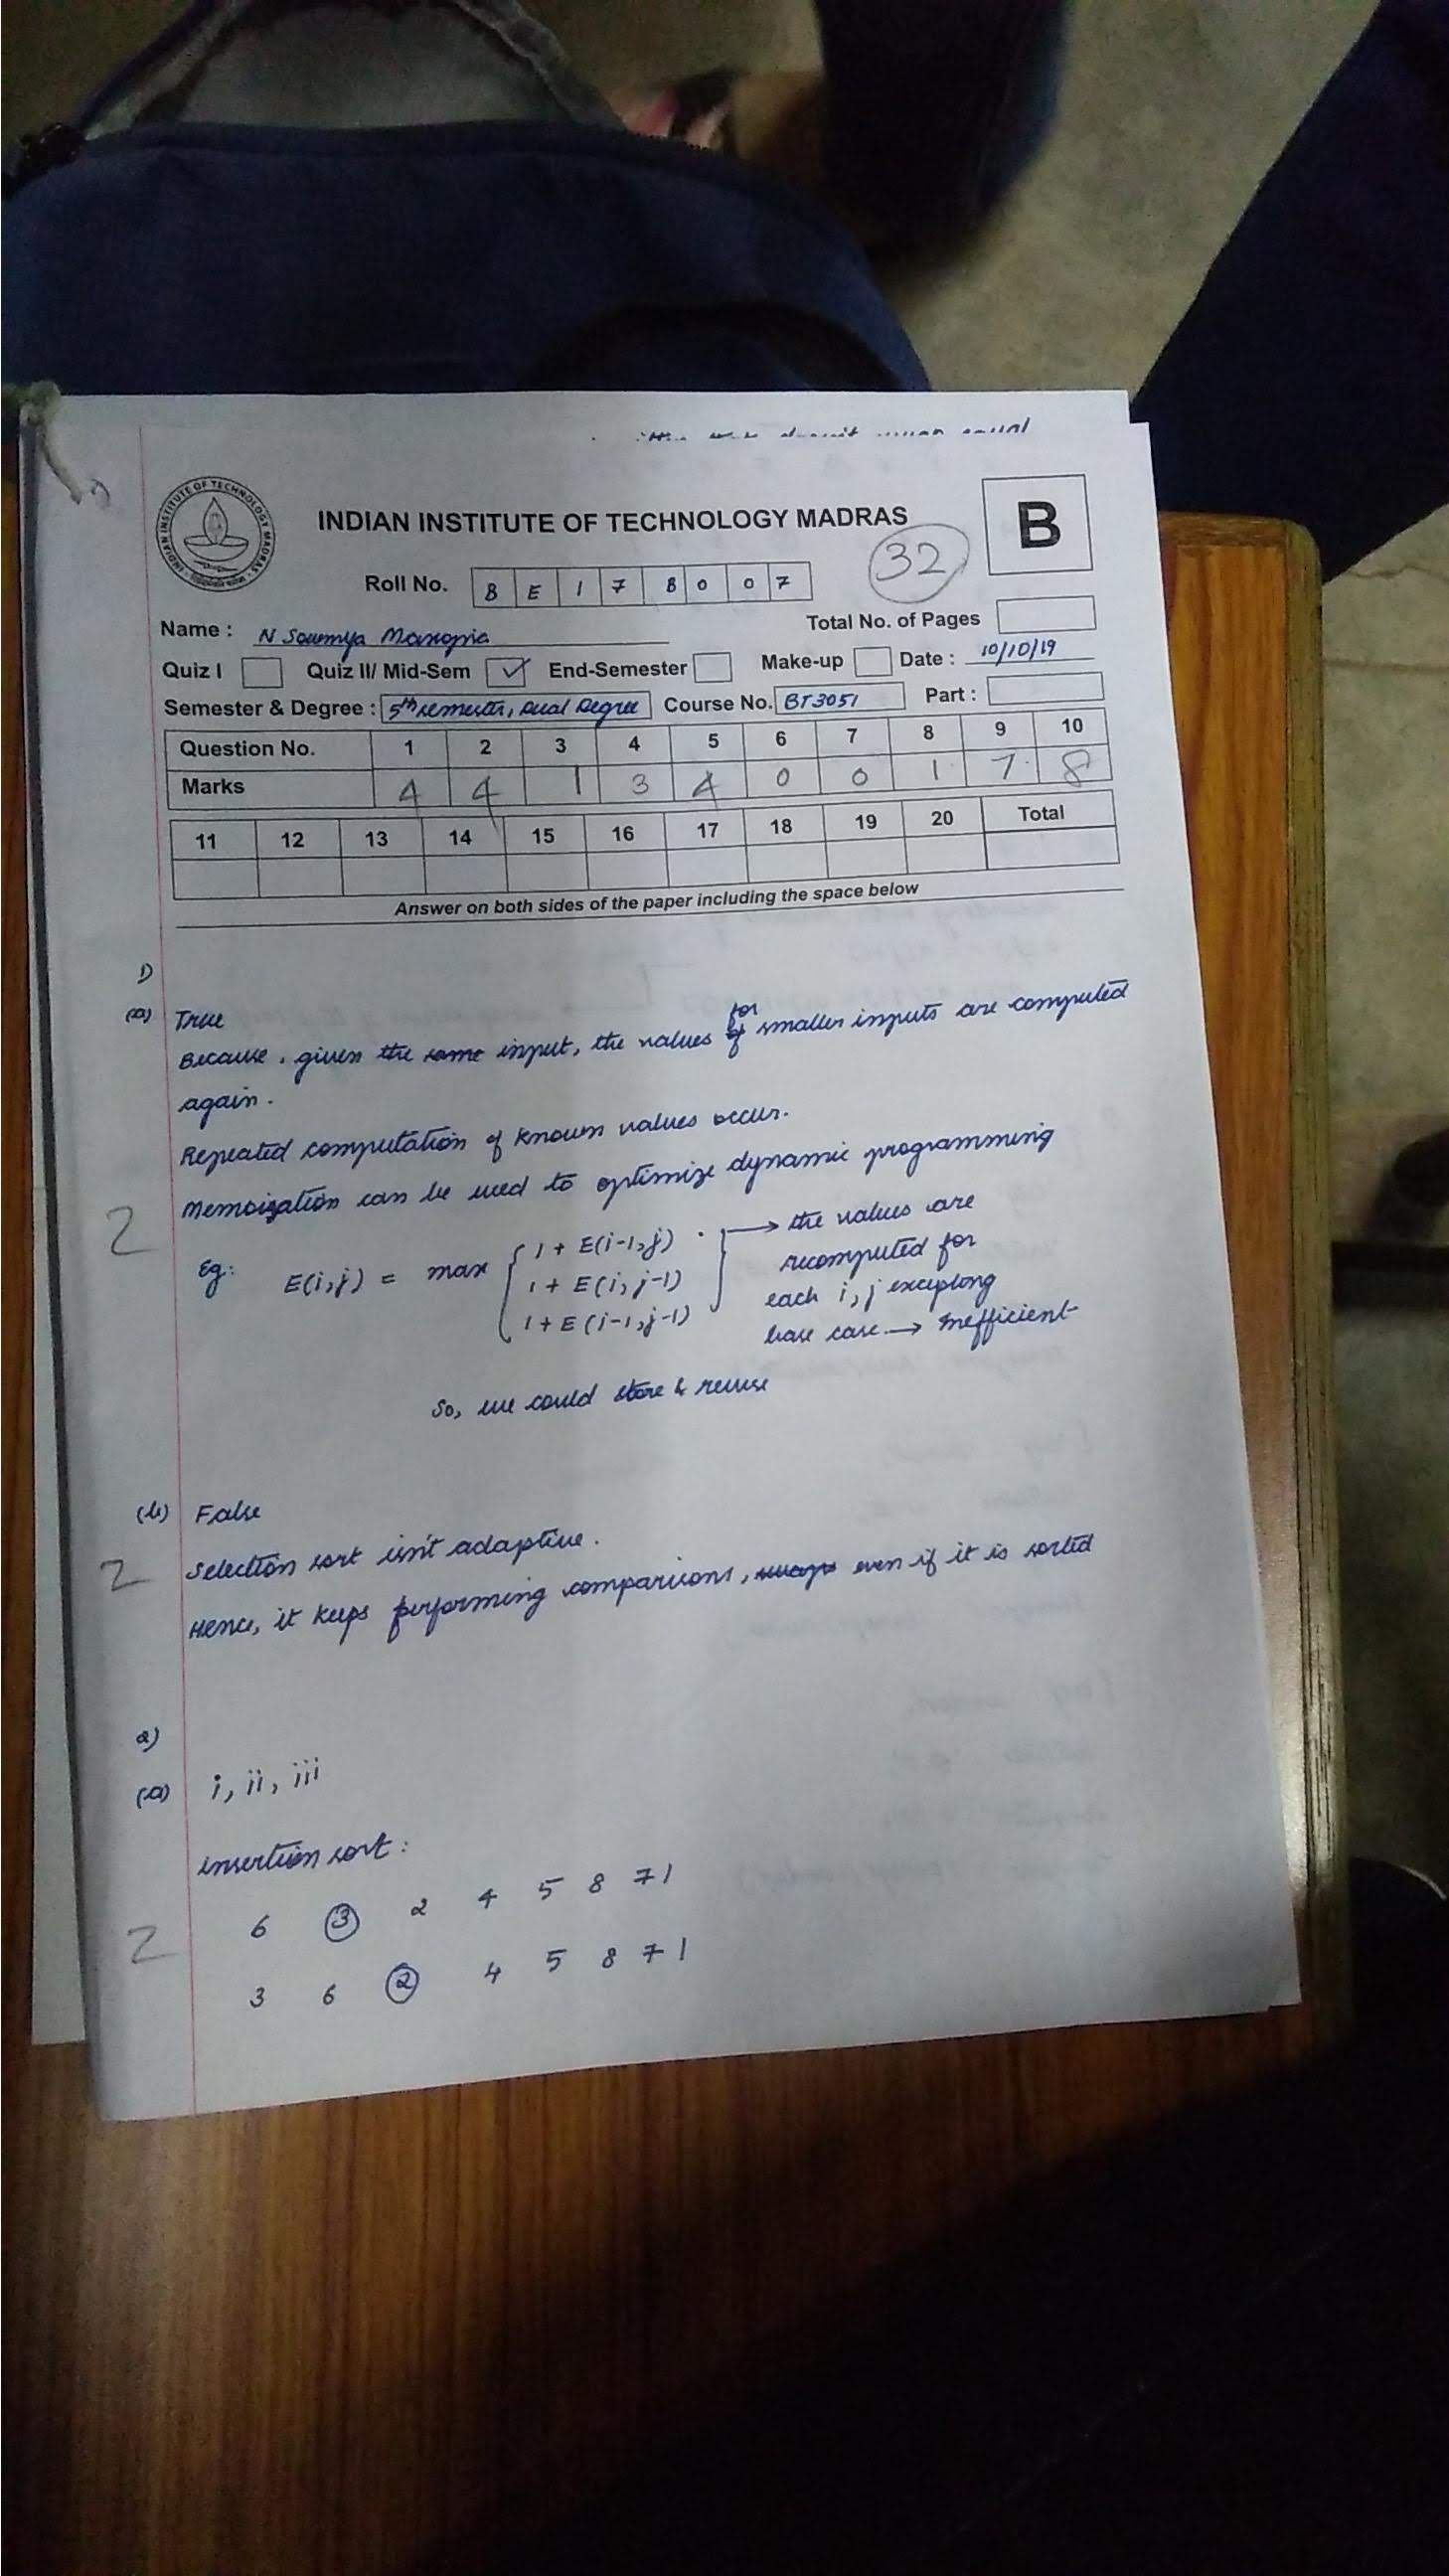 INDIAN INSTITUTE OF TECHNOLOGY MADRAS
B
32
Roll No. B E 1 7 B 0 0 7
Name : N Sowmya Manojna
Total No. of Pages
Quiz I Quiz II/ Mid-Sem ✓ End-Semester Make-up Date : 10/10/19
Semester & Degree : 5th semester, Dual Degree Course No. BT3051 Part :
Question No. 1 2 3 4 5 6 7 8 9 10
Marks 4 4 1 3 4 0 0 1 7 8
11 12 13 14 15 16 17 18 19 20 Total
Answer on both sides of the paper including the space below
1)
(a) True
Because, given the same input, the values for smaller inputs are computed
again.
Repeated computation of known values occur.
Memoization can be used to optimize dynamic programming
2
Eg: E(i,j) = max { 1 + E(i-1,j)
1 + E(i, j-1)
1 + E(i-1,j-1) } → the values are
recomputed for
each i, j excepting
base case. → Inefficient
So, we could store & reuse
(b) False
2 Selection sort isn't adaptive.
Hence, it keeps performing comparisons, swaps even if it is sorted
2)
(a) i, ii, iii
insertion sort:
6 3 2 4 5 8 7 1
2
3 6 2 4 5 8 7 1